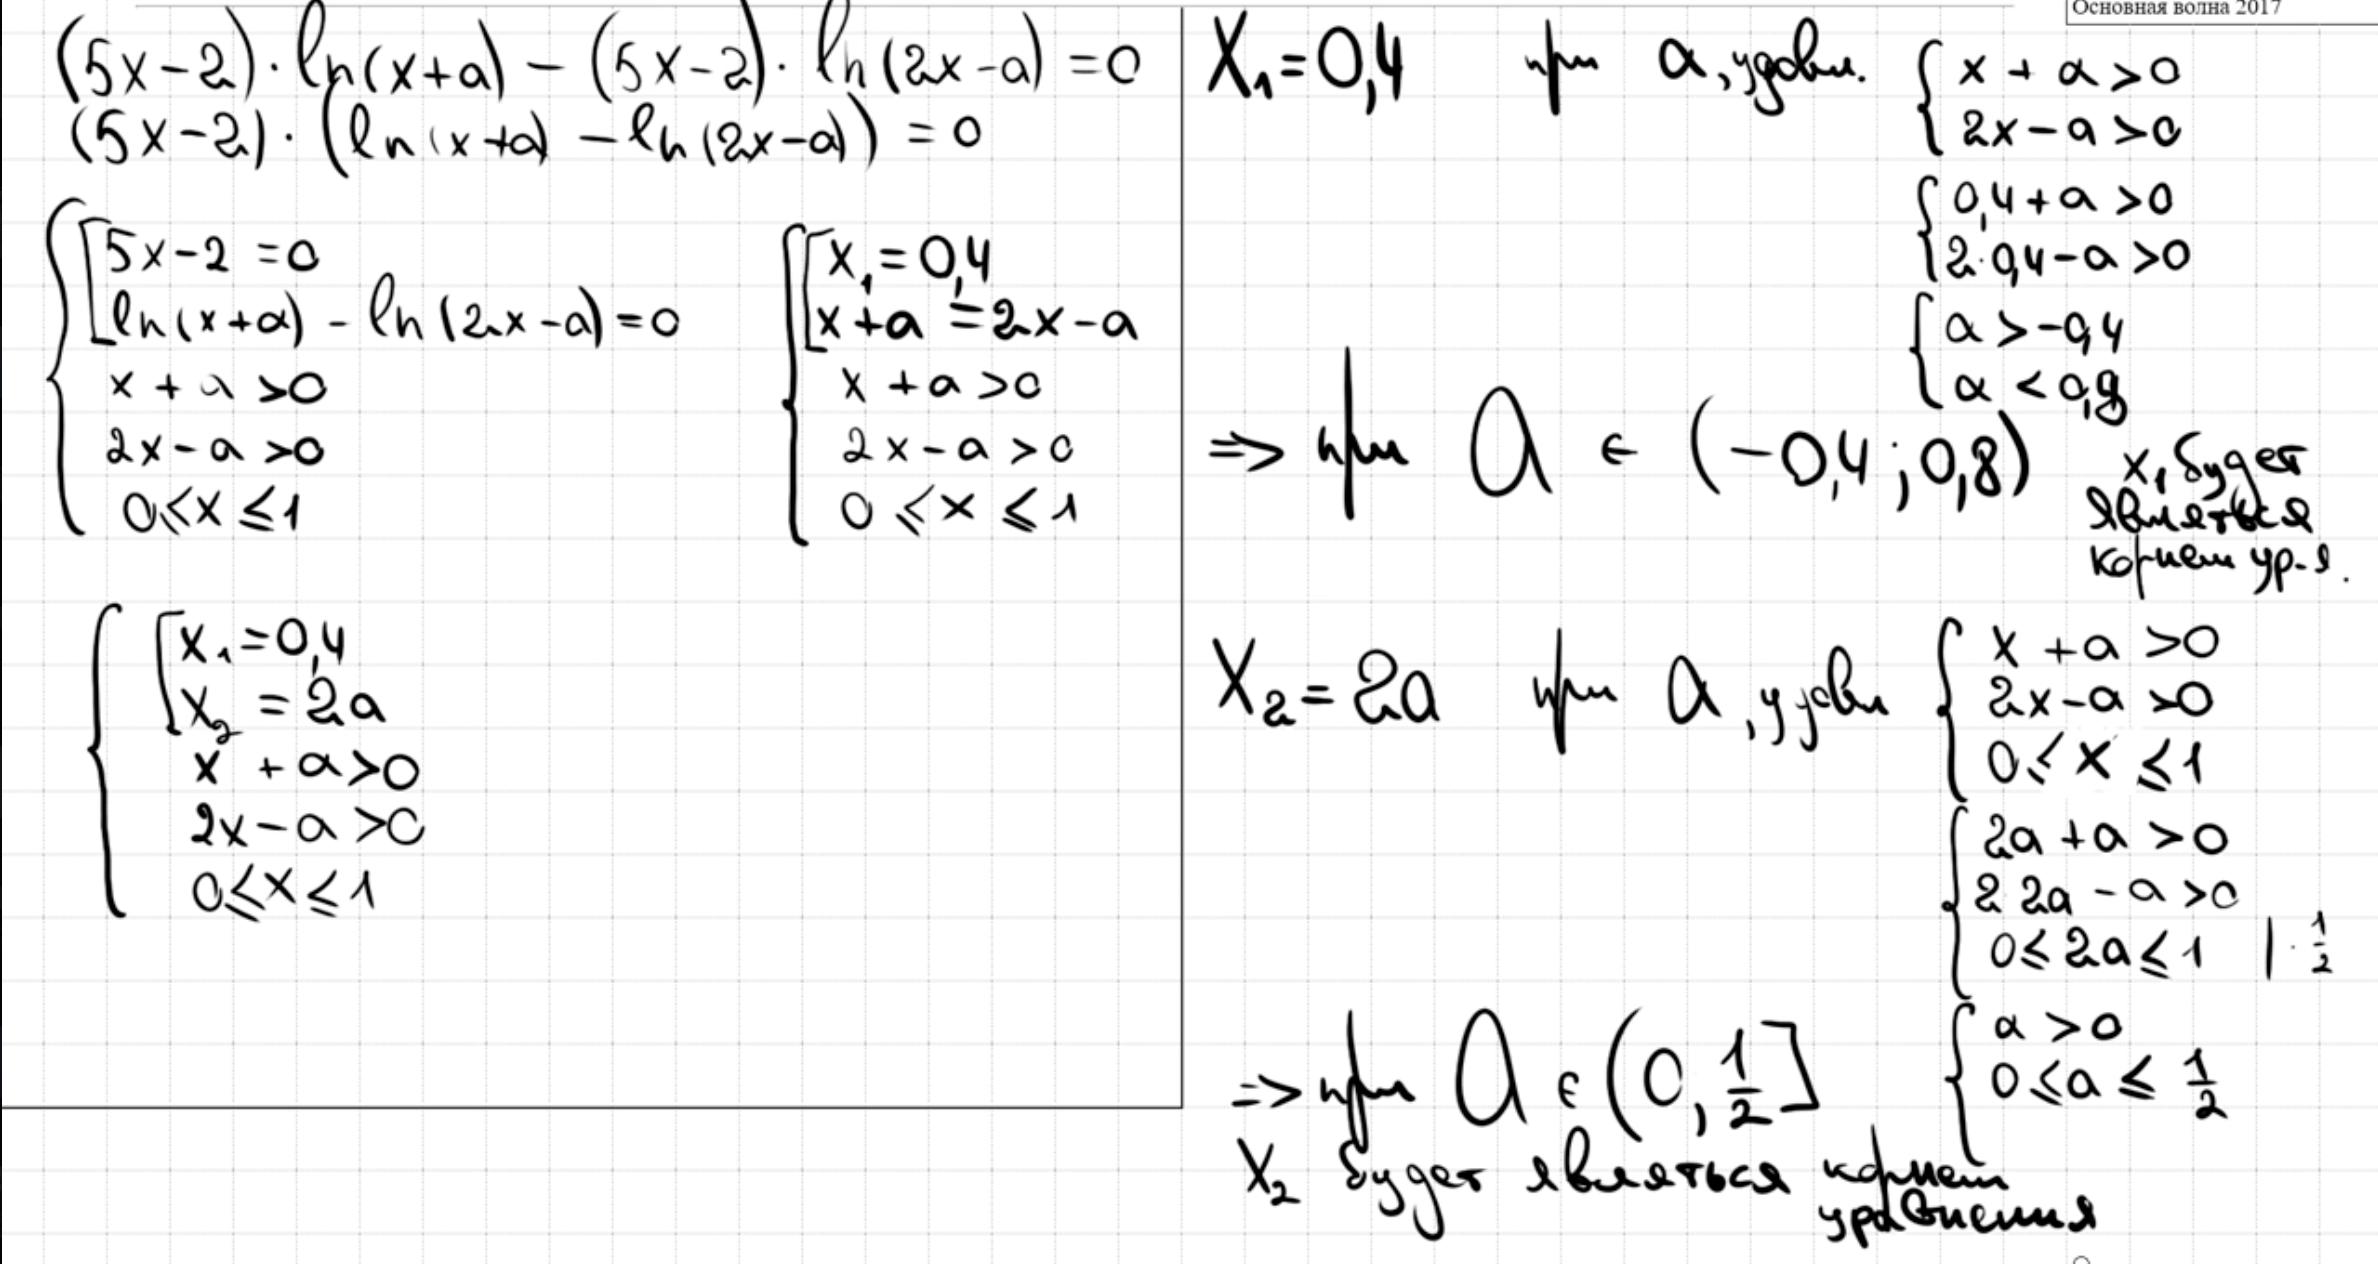 (5x-2)·ln(x+a) - (5x-2)·ln(2x-a) = 0
(5x-2)·(ln(x+a) - ln(2x-a)) = 0
5x-2 = 0
ln(x+a) - ln(2x-a) = 0
x + a > 0
2x - a > 0
0 ≤ x ≤ 1
x₁ = 0,4
x + a = 2x - a
x + a > 0
2x - a > 0
0 ≤ x ≤ 1
x₁ = 0,4
x₂ = 2a
x + a > 0
2x - a > 0
0 ≤ x ≤ 1
Основная волна 2017
X₁ = 0,4 при a, удовл.
x + a > 0
2x - a > 0
0,4 + a > 0
2·0,4 - a > 0
a > -0,4
a < 0,8
=> при a ∈ (-0,4; 0,8)
x₁ будет
являться
корнем ур-я.
X₂ = 2a при a, удовл
x + a > 0
2x - a > 0
0 ≤ x ≤ 1
2a + a > 0
2 2a - a > 0
0 ≤ 2a ≤ 1 | · 1/2
a > 0
0 ≤ a ≤ 1/2
=> при a ∈ (0, 1/2]
X₂ будет являться корнем
уравнения